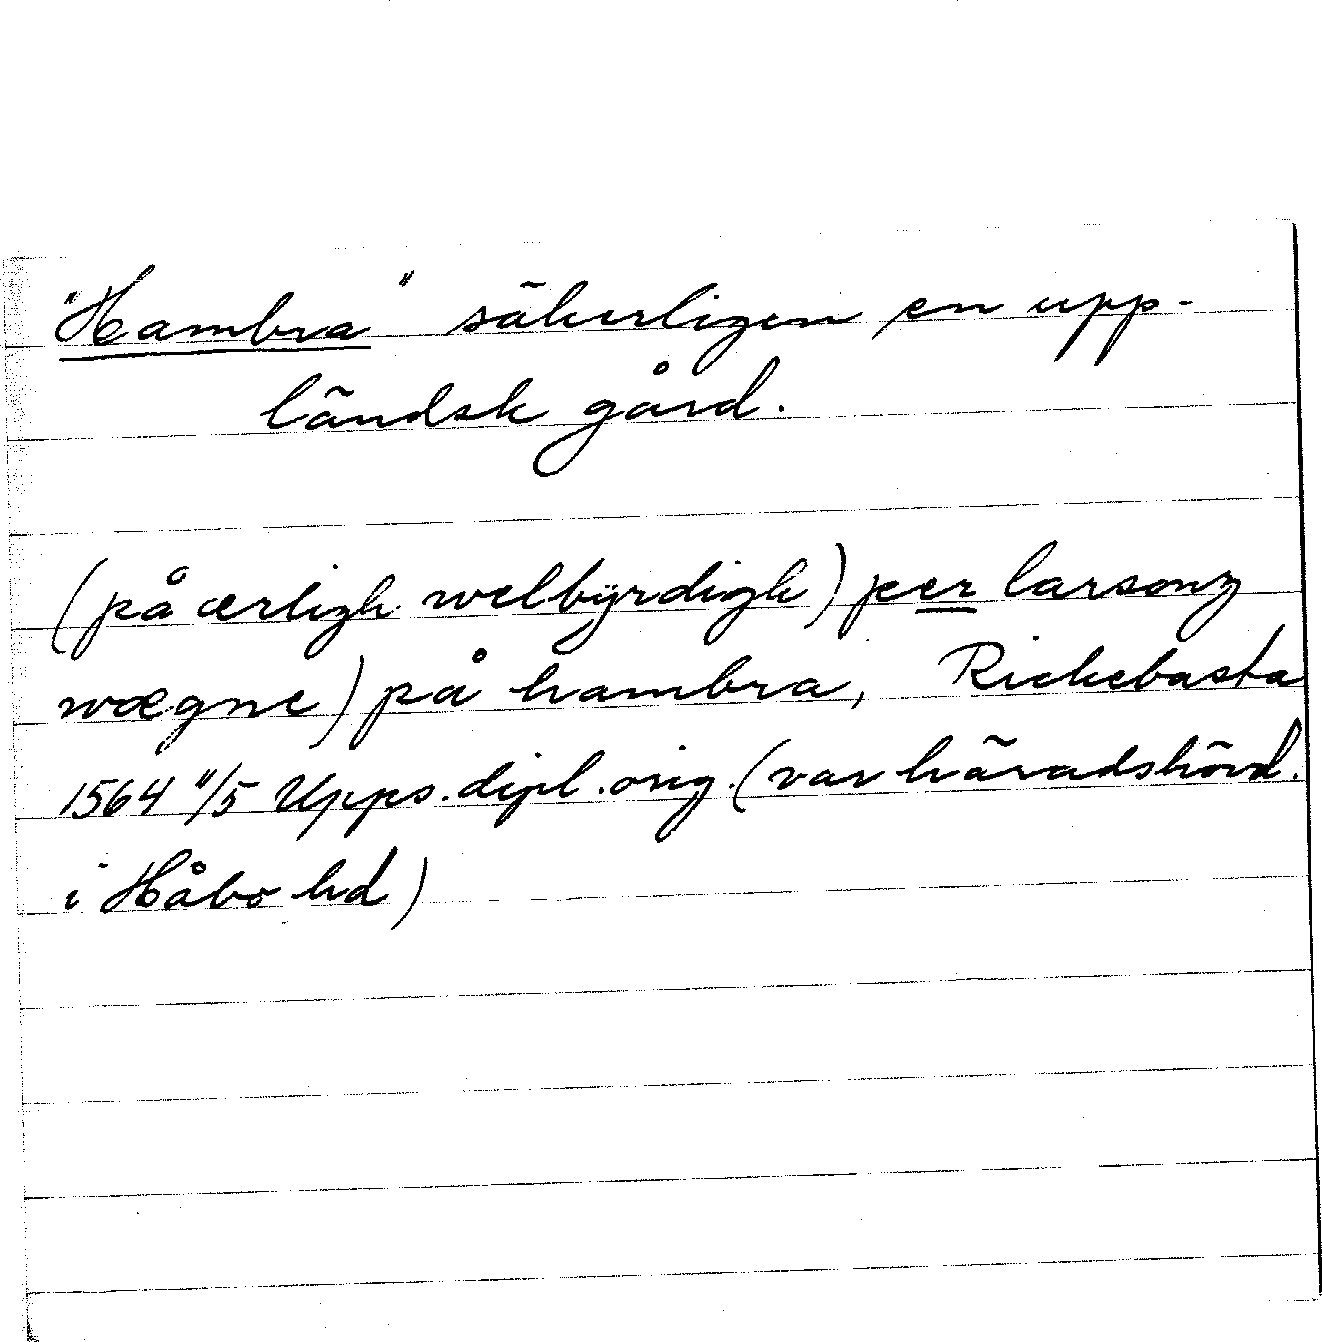 "Hambra" säkerligen en upp-
ländsk gård.
(på ærligh welbyrdigh) per larsonz
wægne) på hambra, Rickebasta
1564 11/5 Upps. dipl. orig. (var häradshövd.
i Håbo hd)